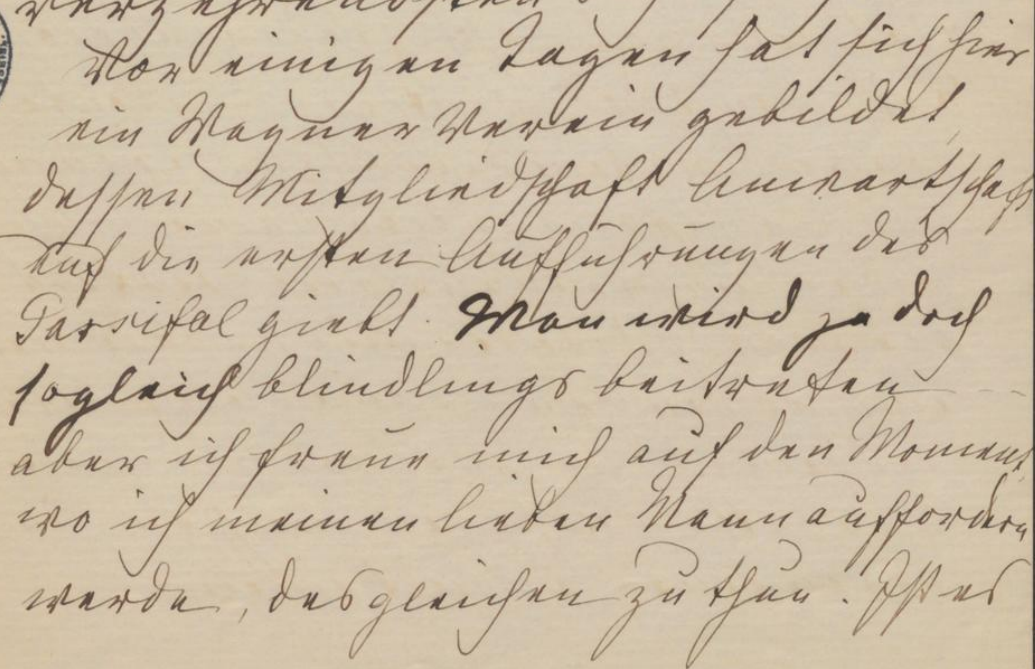 Vor einigen Tagen hat sich hier
ein Wagner Verein gebildet,
dessen Mitgliedschaft Anwartschaft
auf die ersten Aufführungen des
Parsifal giebt. Man wird ja doch
sogleich blindlings beitreten
aber ich freue mich auf den Moment,
wo ich meinen lieben Mann auffordern
werde, desgleichen zu thun. Ist es